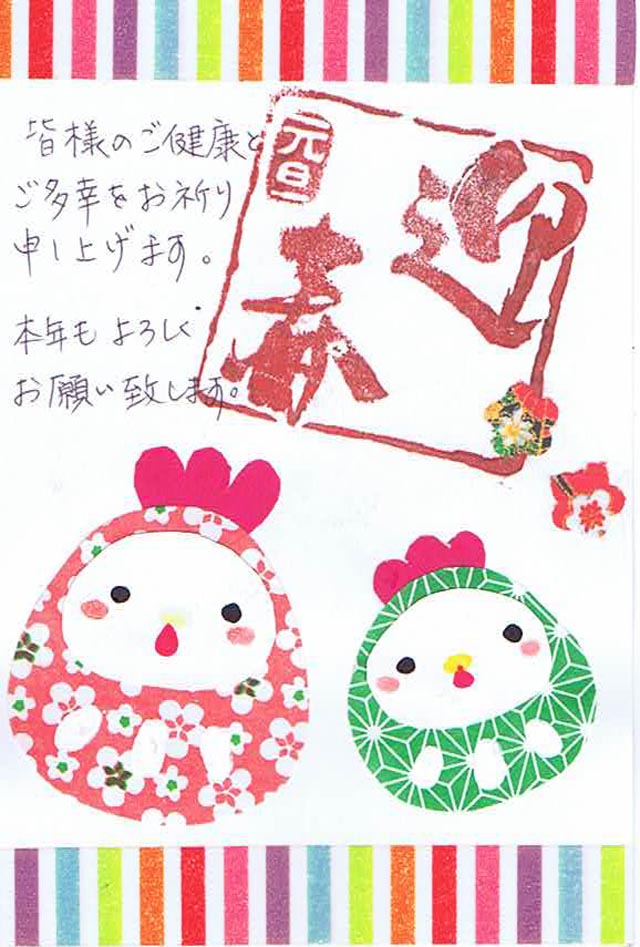 迎春
元旦
皆様のご健康と
ご多幸をお祈り
申し上げます。
本年もよろしく
お願い致します。